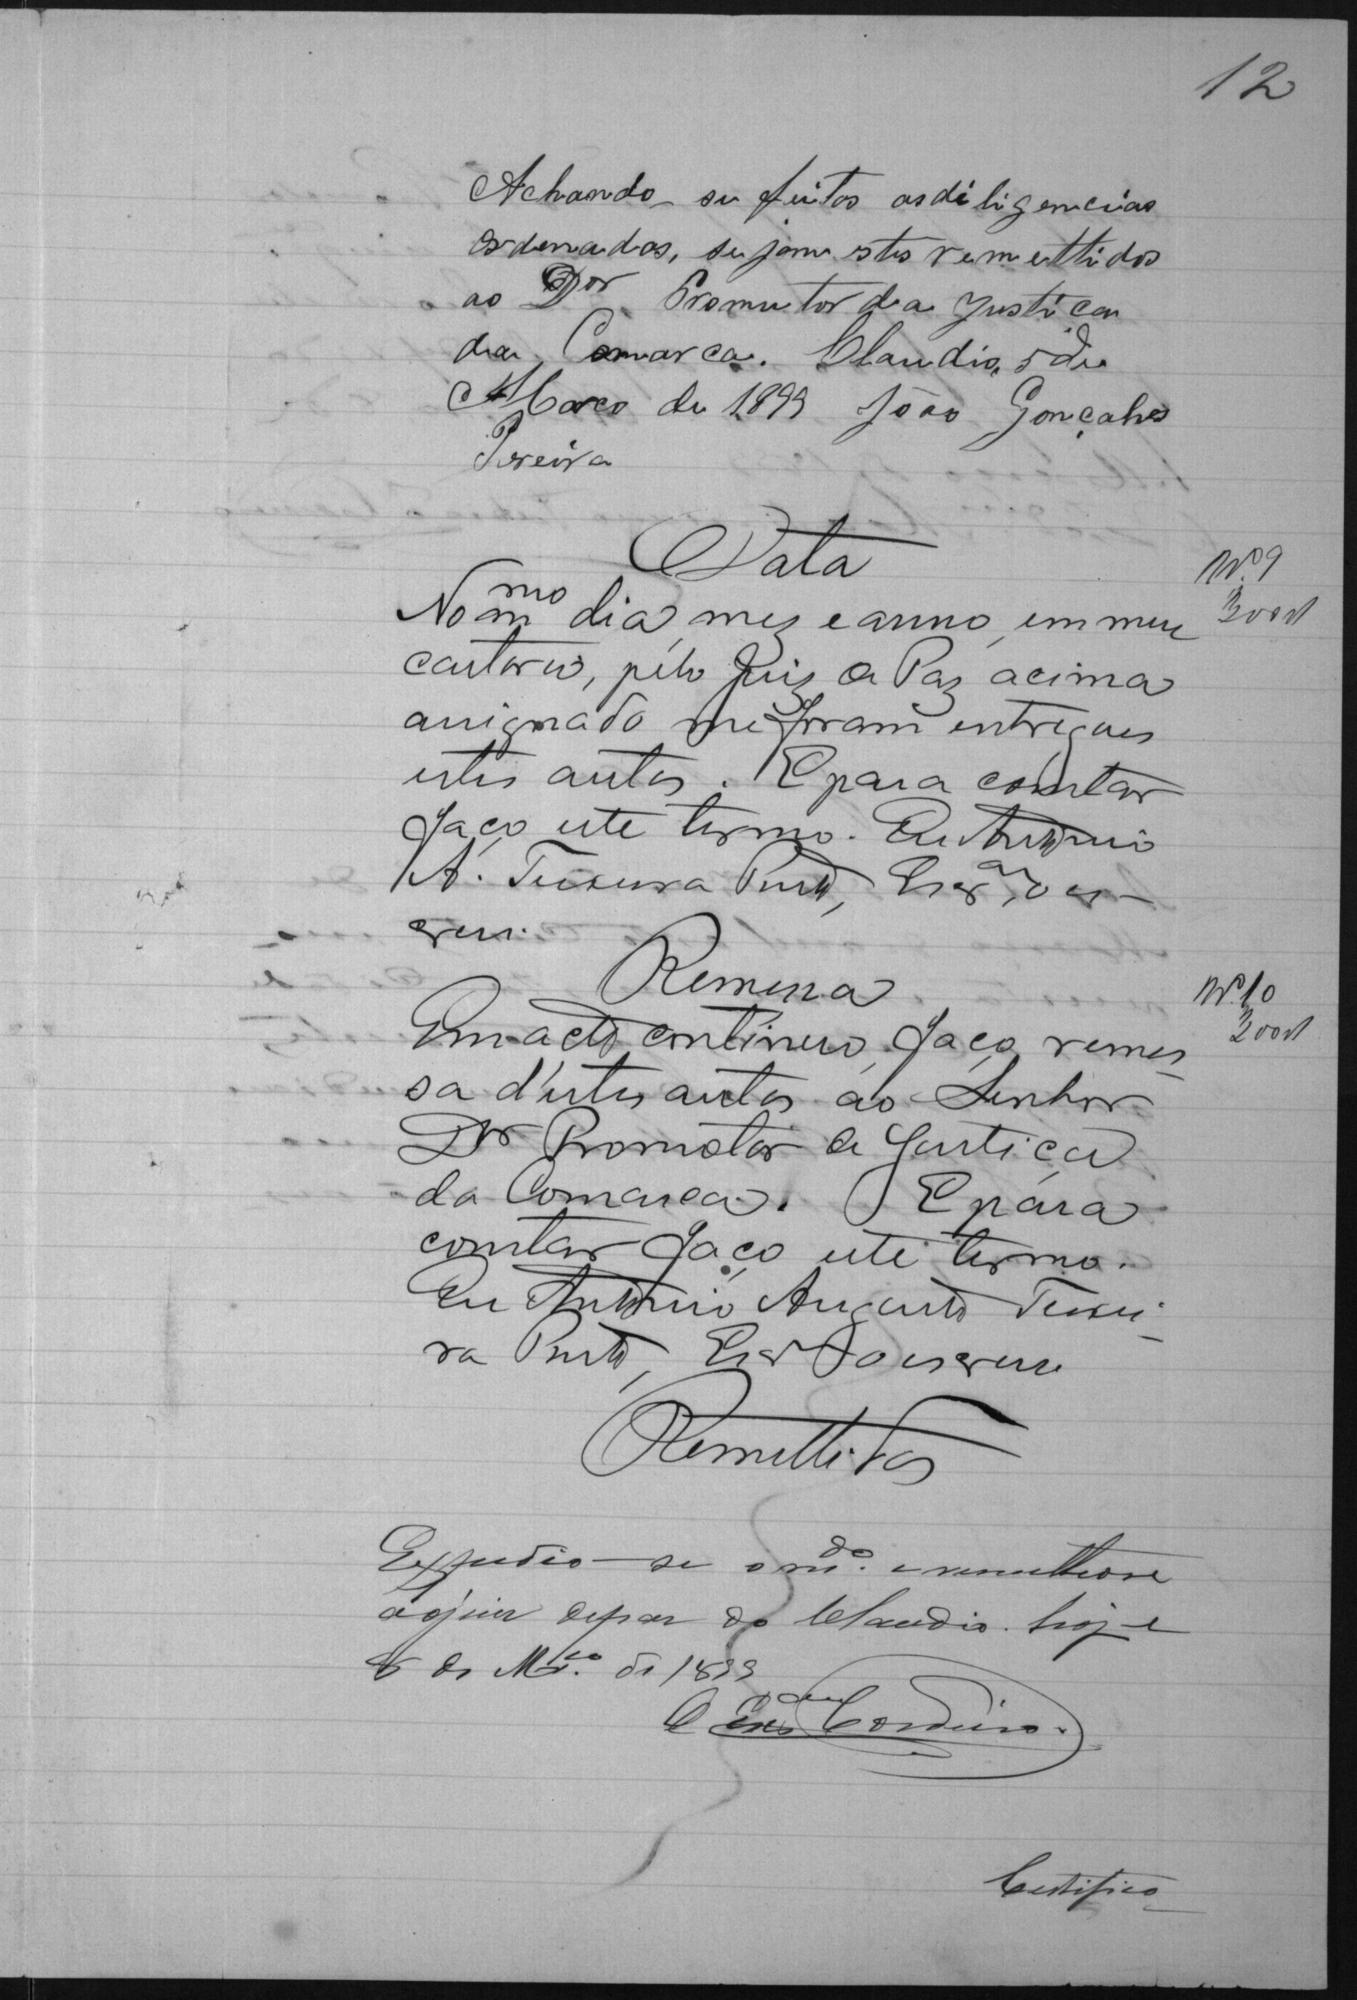 12
Achando-se feitos as diligencias
ordenadas, sejam estes remettidos
ao Dor Promutor da Justica
da Comarca. Claudio, 5 de
Março de 1899 João Gonçalves
Pereira
Data
No mmo dia, mez e anno, em meu
cartorio, pelo Juiz de Paz acima
assignado me foram entregues
estes autos. E para constar
faço este termo. Eu Antonio
A. Teixeira Porto, Escram, o es-
crevi.
Nº 9
300rs
Remessa
Em acto continuo, faço remes-
sa d'estes autos ao Senhor
Dor Promotor de Justiça
da Comarca. E para
constar faço este termo.
Eu Antonio Augusto Teixei-
ra Porto, Escr o escrevi
Nº 10
300rs
Remettidos
se o mdo. e
do Claudio. hoje
de Mço. de 1899
O Escam Cordeiro.
Certifico